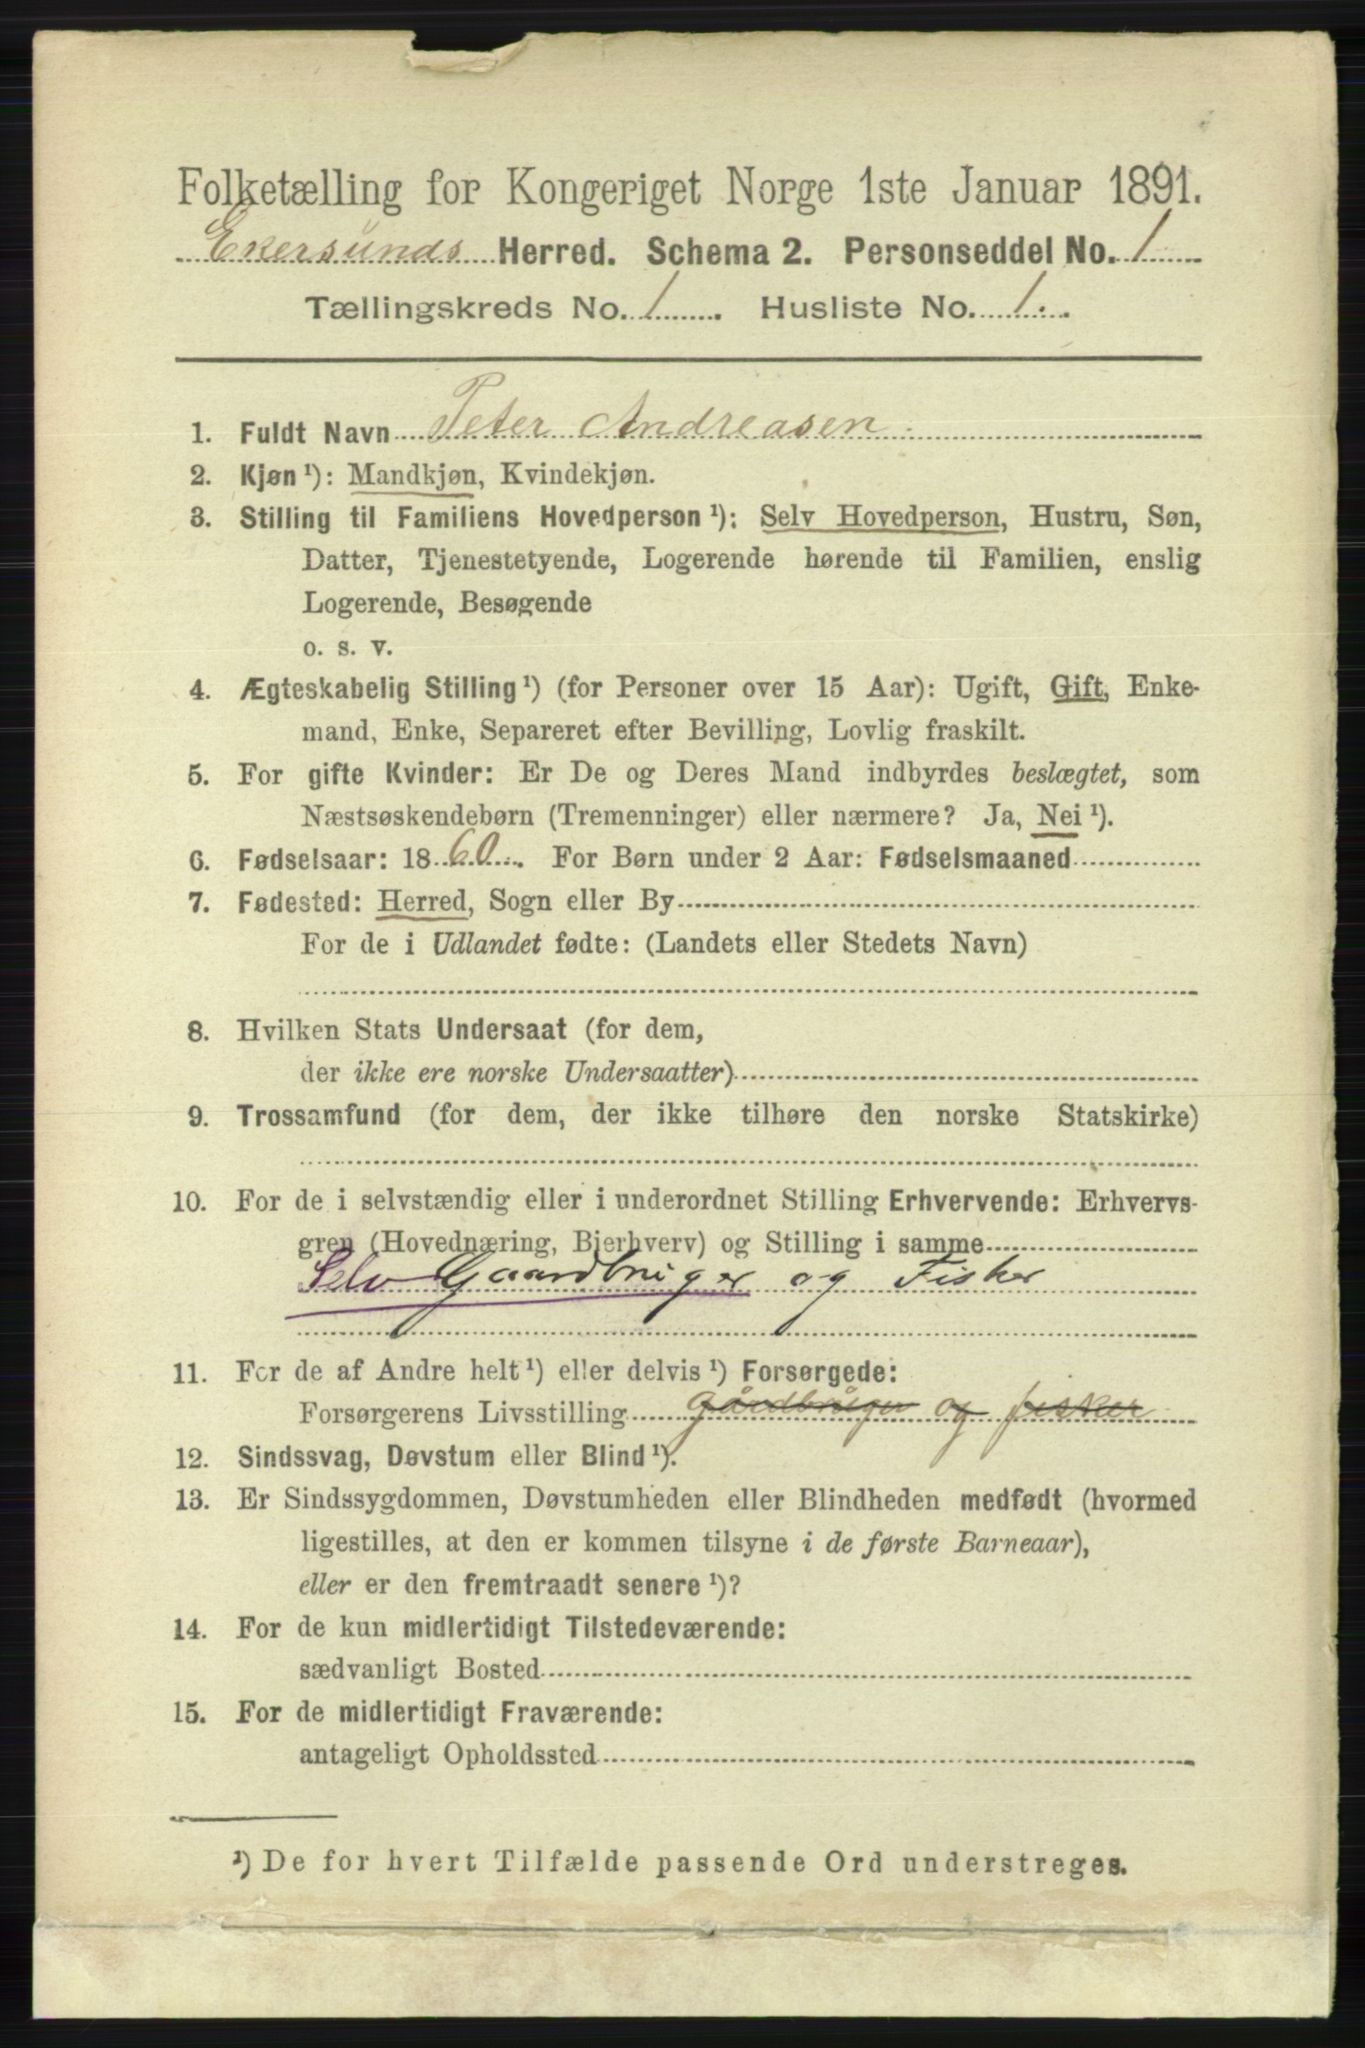 Folketælling for Kongeriget Norge 1ste Januar 1891.
Ekersunds Herred. Schema 2. Personseddel No. 1
Tællingskreds No. 1. Husliste No. 1.
1. Fuldt Navn Peter Andreasen
2. Kjøn ¹): Mandkjøn, Kvindekjøn.
3. Stilling til Familiens Hovedperson ¹): Selv Hovedperson, Hustru, Søn,
Datter, Tjenestetyende, Logerende hørende til Familien, enslig
Logerende, Besøgende
o. s. v.
4. Ægteskabelig Stilling ¹) (for Personer over 15 Aar): Ugift, Gift, Enke-
mand, Enke, Separeret efter Bevilling, Lovlig fraskilt.
5. For gifte Kvinder: Er De og Deres Mand indbyrdes beslægtet, som
Næstsøskendebørn (Tremenninger) eller nærmere? Ja, Nei ¹).
6. Fødselsaar: 1860. For Børn under 2 Aar: Fødselsmaaned
7. Fødested: Herred, Sogn eller By
For de i Udlandet fødte: (Landets eller Stedets Navn)
8. Hvilken Stats Undersaat (for dem,
der ikke ere norske Undersaatter)
9. Trossamfund (for dem, der ikke tilhøre den norske Statskirke)
10. For de i selvstændig eller i underordnet Stilling Erhvervende: Erhvervs-
gren (Hovednæring, Bierhverv) og Stilling i samme
Selv Gaardbruger og Fisker
11. For de af Andre helt ¹) eller delvis ¹) Forsørgede:
Forsørgerens Livsstilling gårdbruger og fisker
12. Sindssvag, Døvstum eller Blind ¹).
13. Er Sindssygdommen, Døvstumheden eller Blindheden medfødt (hvormed
ligestilles, at den er kommen tilsyne i de første Barneaar),
eller er den fremtraadt senere ¹)?
14. For de kun midlertidigt Tilstedeværende:
sædvanligt Bosted
15. For de midlertidigt Fraværende:
antageligt Opholdssted
¹) De for hvert Tilfælde passende Ord understreges.